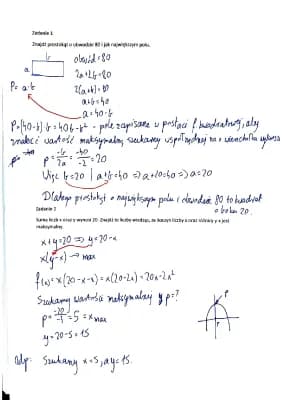 Zadanie 1
Znajdź prostokąt o obwodzie 80 i jak największym polu.
b
a
obwód = 80
2a+2b=80
2(a+b)=80
a+b=40
a=40-b
P=a·b
P=(40-b)·b=40b-b² - pole zapisane w postaci f. kwadratowej, aby
znaleźć wartość maksymalną szukamy współrzędnej p wierzchołka
p = -b/2a = -40/-2 = 20
Więc b=20 | a+b=40 => a+20=40 => a=20
Dlatego prostokąt o największym polu i obwodzie 80 to kwadrat
o boku 20.
Zadanie 2
Suma liczb x oraz y wynosi 20. Znajdź te liczby wiedząc, że iloczyn liczby x oraz różnicy y x jest
maksymalny.
x+y=20 => y=20-x
x(y-x) → max
f(x)=x(20-x-x)=x(20-2x)=20x-2x²
Szukamy wartości maksymalnej p=?
p=-20/-4=5=x max
y=20-5=15
p
Odp: Szukany x=5, a y=15.